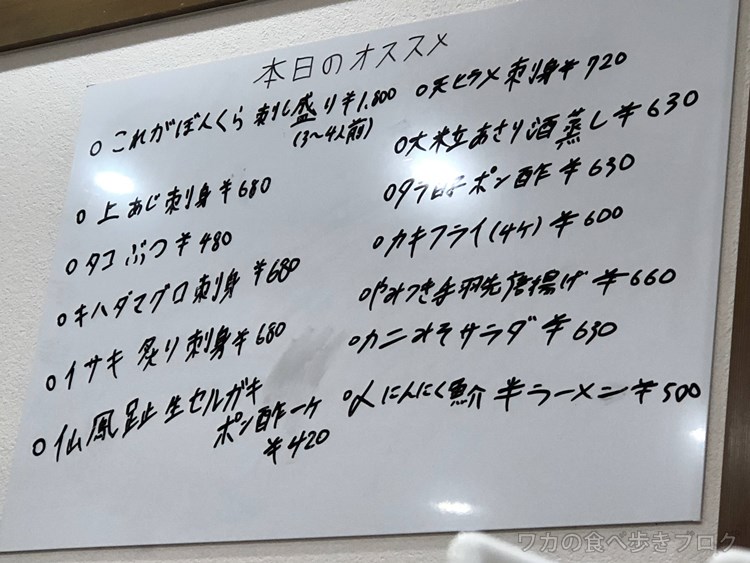 本日のオススメ
○これがぼんくら刺し盛り¥1.800
(3〜4人前)
○上あじ刺身¥680
○タコぶつ¥480
○キハダマグロ刺身¥680
○イサキ炙り刺身¥680
○仏鳳趾生セルガキ
ポン酢一ケ
¥420
○天ヒラメ刺身¥720
○大粒あさり酒蒸し¥630
○タラ白子ポン酢¥630
○カキフライ(4ケ)¥600
○やみつき手羽先唐揚げ¥660
○カニみそサラダ¥630
○〆にんにく魚介半ラーメン¥500
ワカの食べ歩きブログ